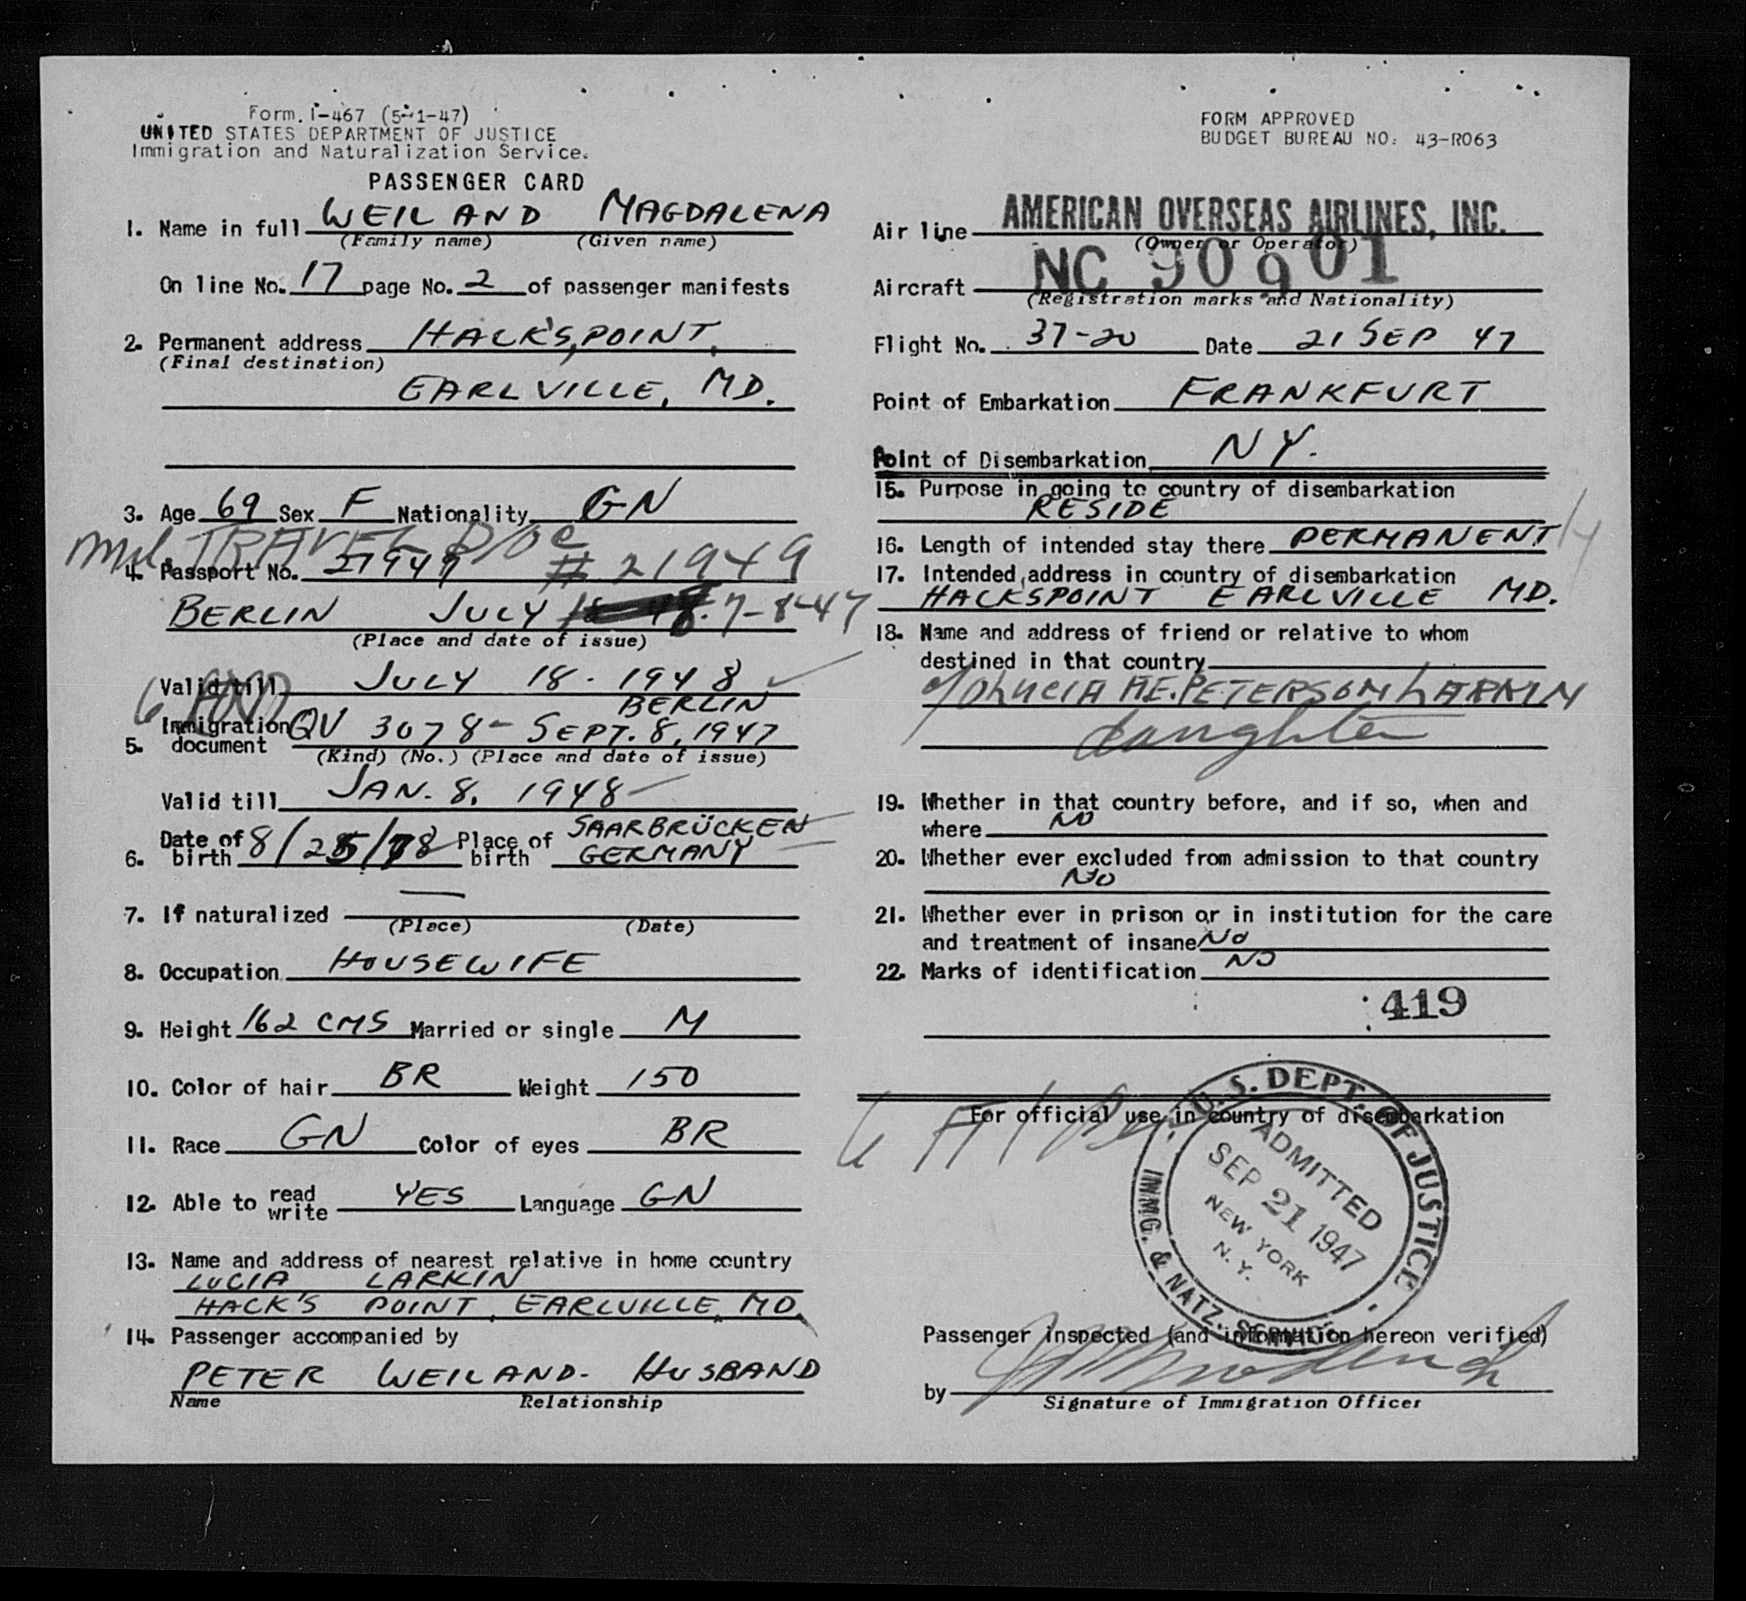 Form. I-467 (5-1-47)
UNITED STATES DEPARTMENT OF JUSTICE
Immigration and Naturalization Service.
PASSENGER CARD
1. Name in full WEILAND MAGDALENA
(Family name) (Given name)
On line No. 17 page No. 2 of passenger manifests
2. Permanent address HACK'S, POINT,
(Final destination)
EARLVILLE, MD.
3. Age 69 Sex F Nationality GN
TRAVEL DOC
4. Passport No. 21949 # 21949
BERLIN JULY 7-8-47
(Place and date of issue)
Valid till JULY 18. 1948
BERLIN
5. Immigration document QV 3078- SEPT. 8, 1947
(Kind) (No.) (Place and date of issue)
Valid till JAN. 8. 1948
6. Date of birth 8/25/78 Place of birth SAARBRÜCKEN
GERMANY
7. If naturalized —
(Place) (Date)
8. Occupation HOUSEWIFE
9. Height 162 CMS Married or single M
10. Color of hair BR Weight 150
11. Race GN Color of eyes BR
12. Able to read write YES Language GN
13. Name and address of nearest relative in home country
LUCIA LARKIN
HACK'S POINT, EARLVILLE, MD.
14. Passenger accompanied by
PETER WEILAND- HUSBAND
Name Relationship
FORM APPROVED
BUDGET BUREAU NO. 43-R063
Air line AMERICAN OVERSEAS AIRLINES, INC.
(Owner or Operator)
Aircraft NC 90901
(Registration marks and Nationality)
Flight No. 37-20 Date 21 SEP 47
Point of Embarkation FRANKFURT
Point of Disembarkation NY.
15. Purpose in going to country of disembarkation
RESIDE
16. Length of intended stay there PERMANENT
17. Intended address in country of disembarkation
HACKSPOINT EARLVILLE MD.
18. Name and address of friend or relative to whom
destined in that country
LUCIA PETERSON LARKIN
daughter
19. Whether in that country before, and if so, when and
where NO
20. Whether ever excluded from admission to that country
NO
21. Whether ever in prison or in institution for the care
and treatment of insane NO
22. Marks of identification NO
419
For official use in country of disembarkation
U.S. DEPT. OF JUSTICE
ADMITTED
SEP 21 1947
NEW YORK
N.Y.
IMMG. & NATZ. SERVICE
Passenger inspected (and information hereon verified)
by
Signature of Immigration Officer